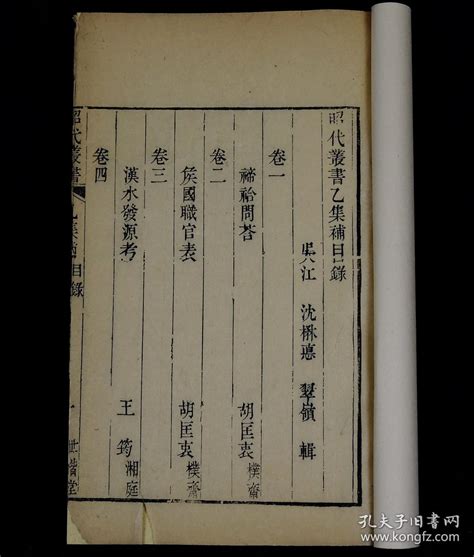 昭代叢書乙集補目錄
吳江 沈楙悳 翠嶺 輯
卷一
禘祫問荅 胡匡衷 樸齋
卷二
侯國職官表 胡匡衷 樸齋
卷三
漢水發源考 王筠 湘庭
卷四
昭代叢書 乙集補 目錄 一 世楷堂
孔夫子旧书网
www.kongfz.com